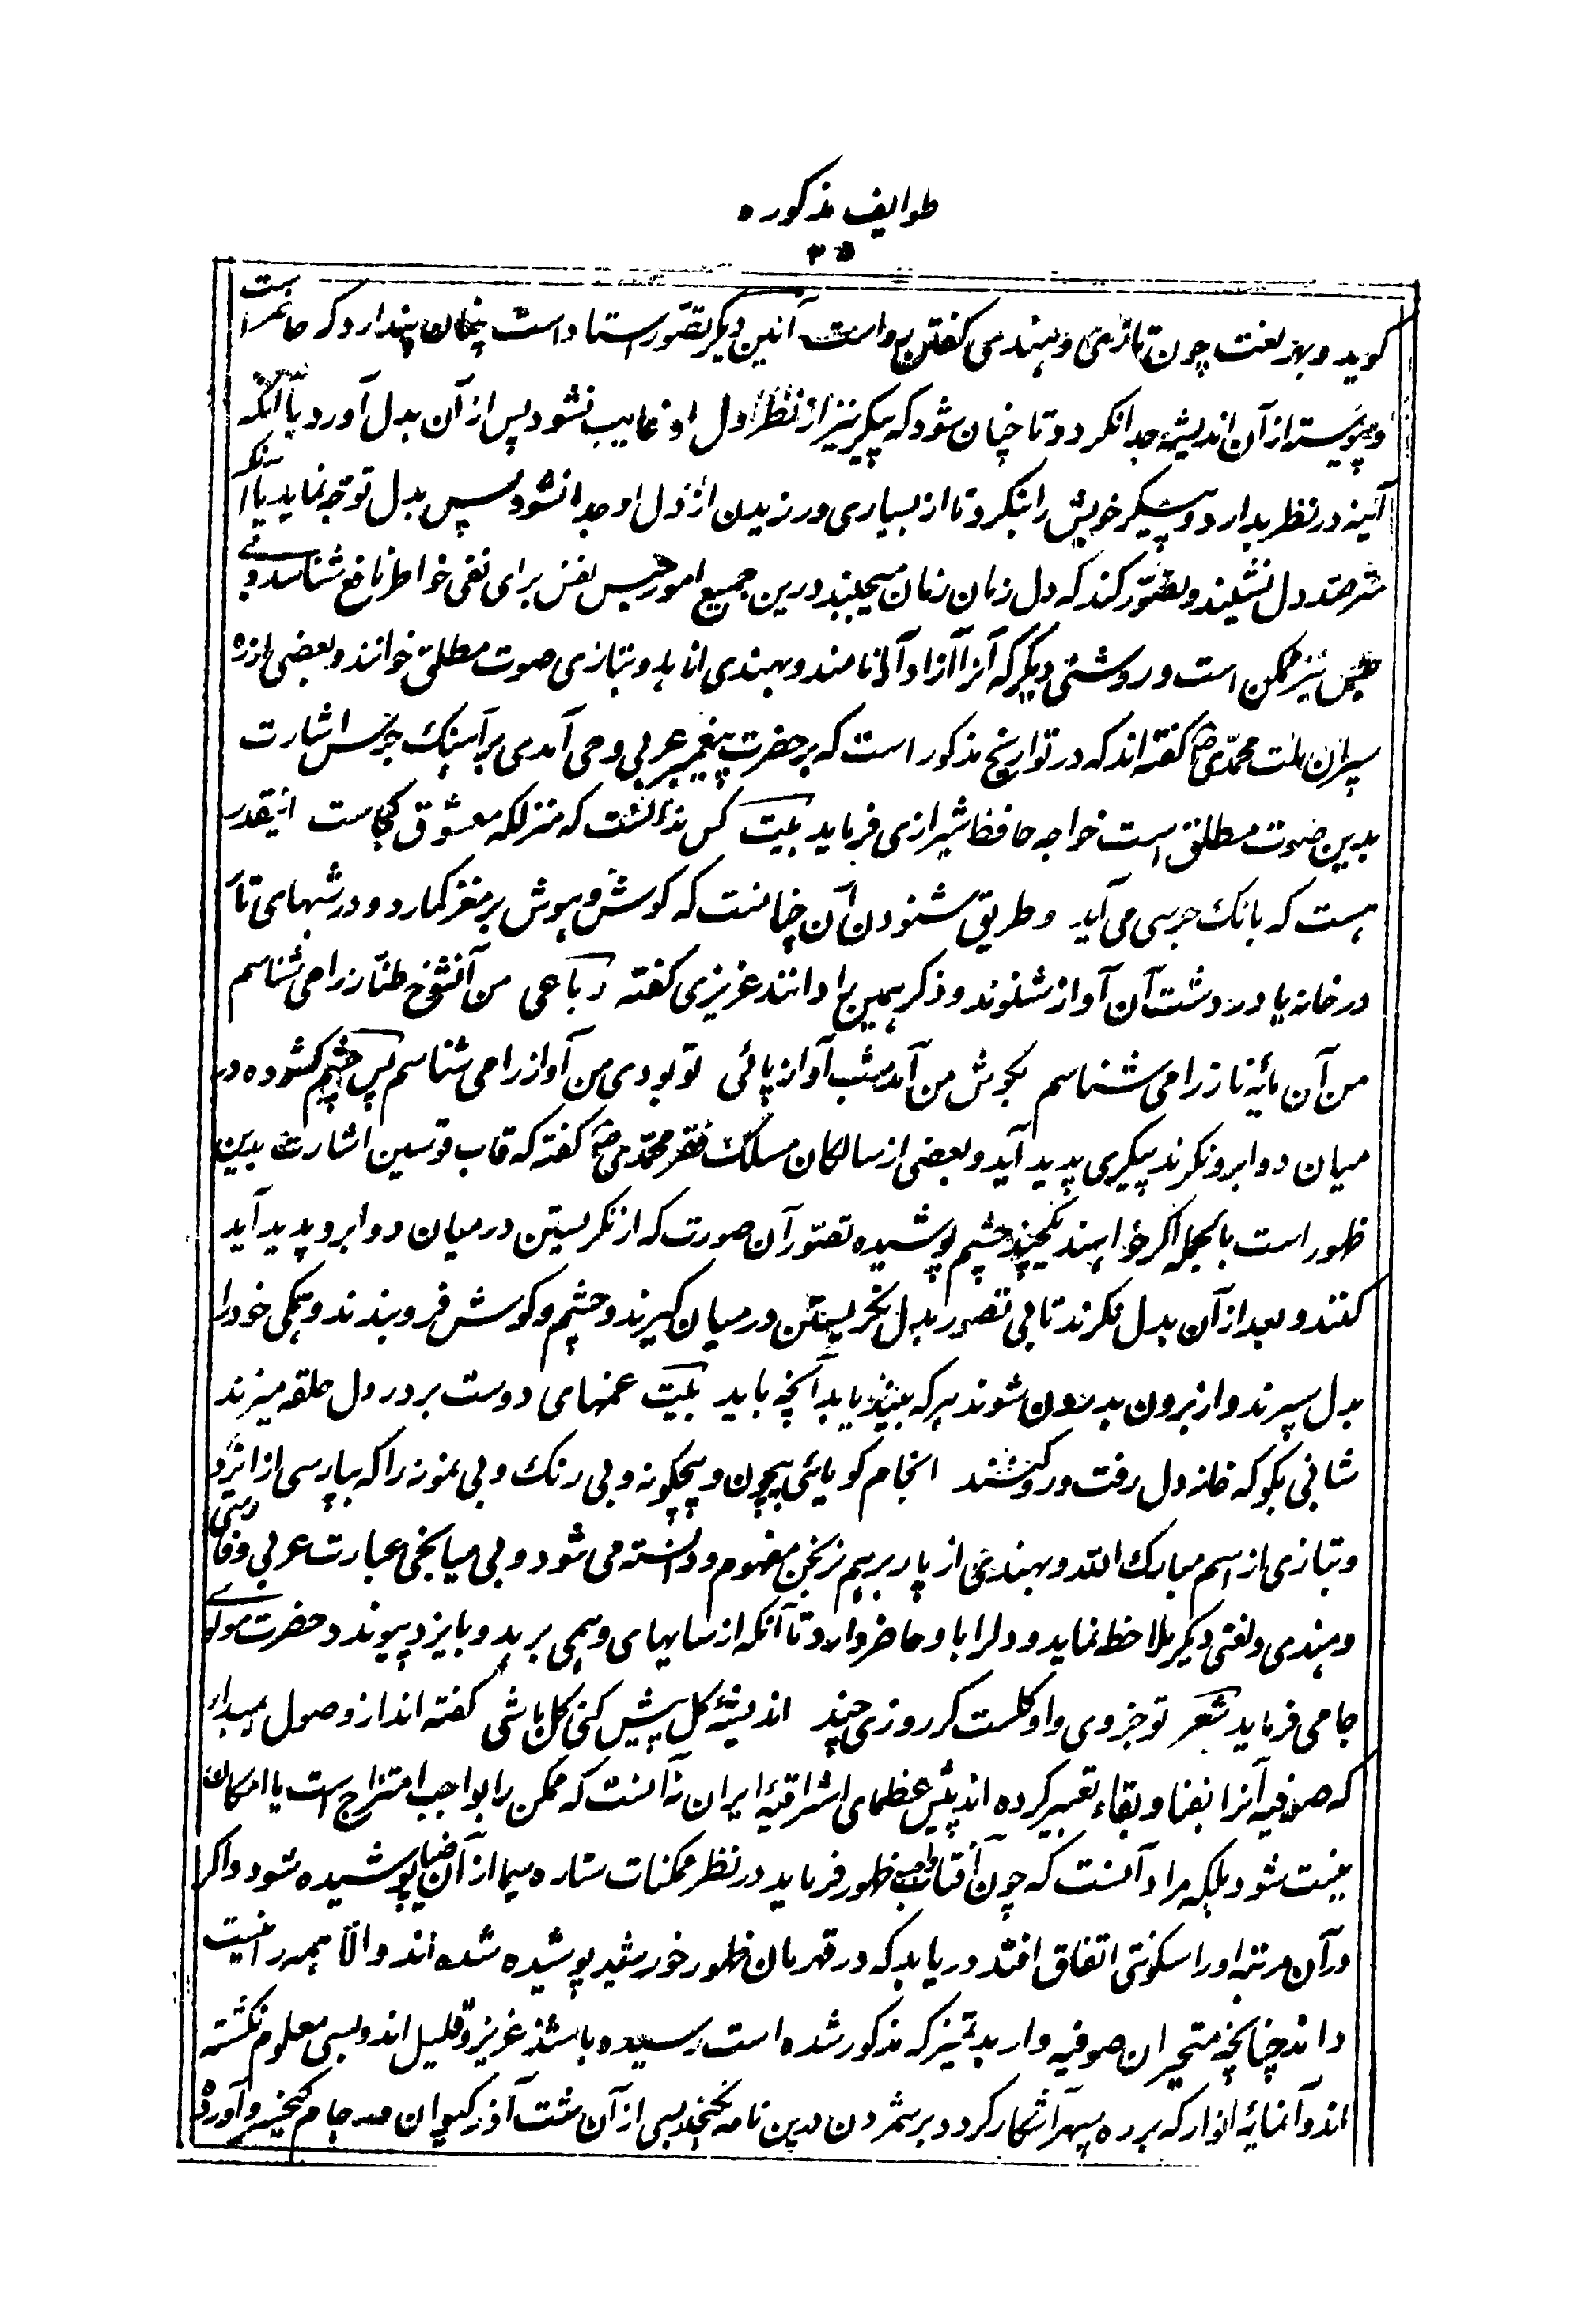 طوایف مذکوره
۳۵
کوید و بهر لغت چون تازی و هندی کفتن رواست آئین دیکر تصور استاد است چنان پندارد که حاضر است
و پیوسته از آن اندیشه جدا نکردد تا چنان شود که پیکر نیز از نظر دل او غایب نشود پس از آن بدل آورد یا آنکه
آئینه در نظر بدارد و پیکر خویش را بنکرد تا از بسیاری ورزیدن از دل او جدا نشود سپس بدل توجه نماید یا آنکه
مترصد دل نشیند و تصور کند که دل زمان زمان میجنبد درین جمیع امور حبس نفس برای نفی خواطر نافع شناسد و بی
حبس نیز ممکن است و روشنی دیکر که آنرا آزاد آوا نامند و بهندی اناهد و بتازی صوت مطلق خوانند و بعضی از ره
سپران ملت محمدی کفته اند که در تواریخ مذکور است که بر حضرت پیغمبر عربی وحی آمدی بر آهنک جرس اشارت
بدین صوت مطلق است خواجه حافظ شیرازی فرماید بیت کس ندانست که منزلکه معشوق کجاست اینقدر
هست که بانک جرسی می آید و طریق شنودن آن چنانست که کوش و هوش بر مغز کمارد و در شبهای تار
در خانه یا در دشت آن آواز شنوند و ذکر همین را دانند عزیزی کفته رباعی من آنشوخ طناز را می شناسم
من آن مایه ناز را می شناسم بکوش من آمد شب آواز پائی تو بودی من آواز را می شناسم پس چشم کشوده در
میان دو ابرو نکرند پیکری پدید آید و بعضی از سالکان مسلک فقر محمدی کفته که قاب قوسین اشارت بدین
ظهور است بالجمله اکر خواهند چشم پوشیده تصور آن صورت که از نکریستن در میان دو ابرو پدید آید
کنند و بعد از آن بدل نکرند تا بی تصور بدل نکریستن در میان کیرند و چشم و کوش فرو بندند و همکی خود را
بدل سپرند و از برون بدرون شوند هر که بیند یابد آنچه باید بیت غمهای دوست بر در دل حلقه میزند
شانی بکو که خانه دل رفت و رو کنند انجام کویائی بیچون و بیچکونه و بی رنک و بی نمونه را که بپارسی از ایزد
و بتازی از اسم مبارک الله و بهندی از پاربرهم نرنجن مفهوم و دانسته می شود و بی میانجی عبارت عربی و فارسی
و هندی و لغتی دیکر ملاحظه نماید و دل را با و حاضر دارد تا آنکه از سایهای وهمی برهد و با یزد پیوندد حضرت مولوی
جامی فرماید شعر تو جزوی و او کلست کر روزی چند اندیشه کل پیش کنی کل باشی کفته اند از وصول بمبداء
که صوفیه آنرا بفنا و بقاء تعبیر کرده اند پیش عظمای اشراقیه ایران نه آنست که ممکن را بواجب امتزاج است یا امکان
نیست شود بلکه مراد آنست که چون آفتاب واجب ظهور فرماید در نظر ممکنات ستاره سیما از آن ضیا پوشیده شود و اکر
در آن مرتبه او را سکونتی اتفاق افتد دریابد که در قهرمان ظهور خورشید پوشیده شده اند و الا همه را نیست
داند چنانچه متحیران صوفیه و ارباب تمیز که مذکور شده است رسیده باشند عزیز و قلیل اند و بسی معلوم نکشته
اند و آنمایه انوار که بر ره سپر آشکار کردد بر شمردن بدین نامه نکنجد بسی از آن شت آذر کیوان در جام کیخسرو آورده